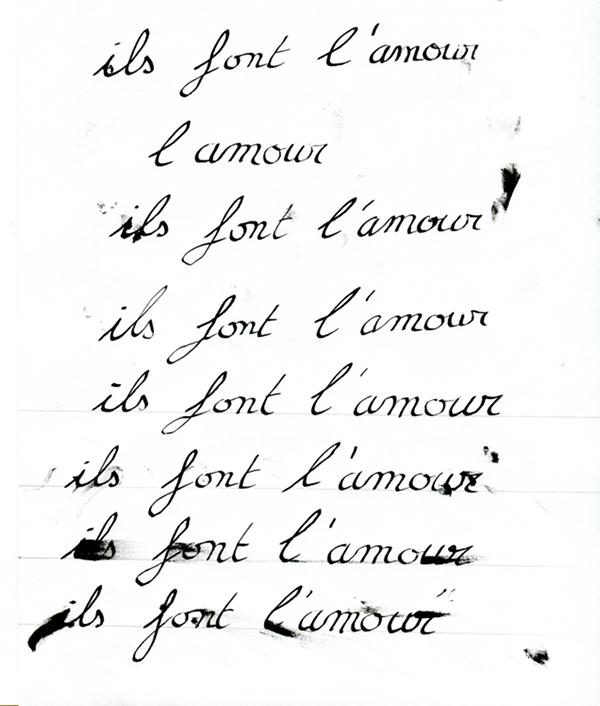 ils font l'amour
l amour
ils font l'amour
ils font l'amour
ils font l'amour
ils font l'amour
ils font l'amour
ils font l'amour